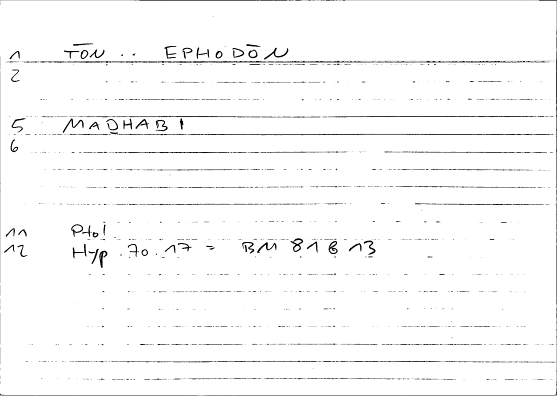 1 TŌN .. EPHODŌN
2
5 MADHABI
6
11 Ptol.
12 Hyp. 70.17 = BM 81613